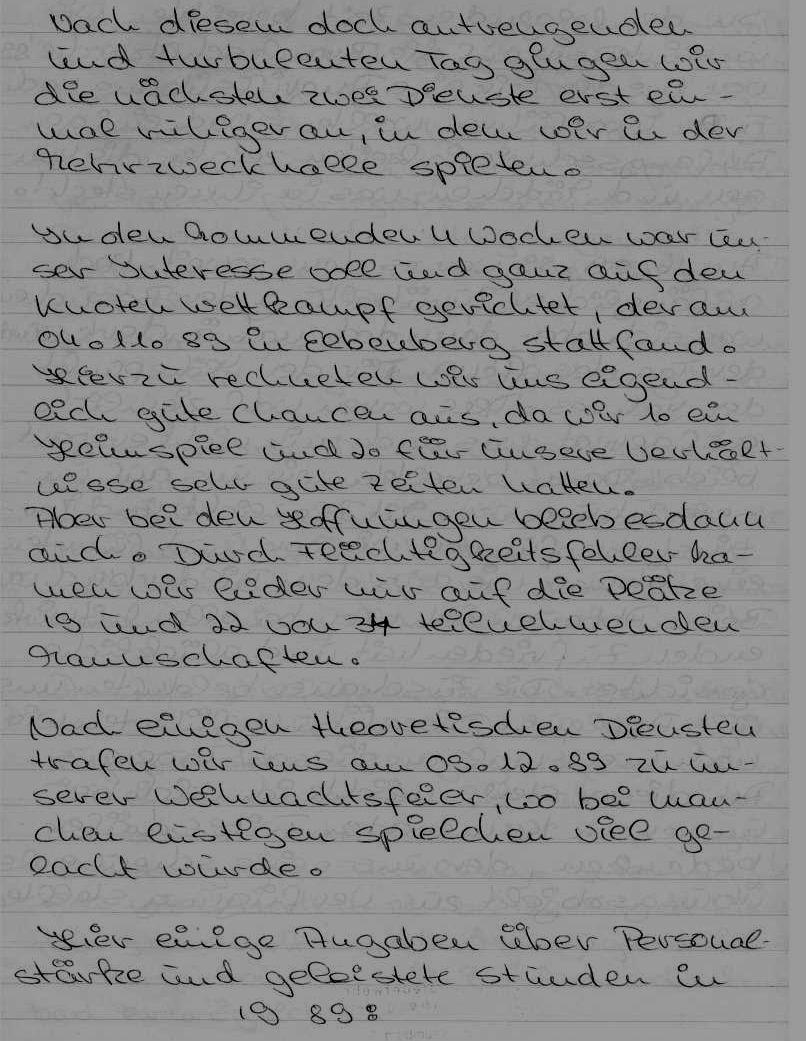 Nach diesem doch antrengenden
und turbulenten Tag gingen wir
die nächsten zwei Dienste erst ein-
mal ruhiger an, in dem wir in der
Mehrzweckhalle spielten.
In den kommenden 4 Wochen war un-
ser Interesse voll und ganz auf den
Knoten wettkampf gerichtet, der am
04.11.89 in Elbenberg stattfand.
Hierzu rechneten wir uns eigend-
lich gute Chancen aus, da wir 1o ein
Heimspiel und 2o für unsere Verhält-
nisse sehr gute Zeiten hatten.
Aber bei den Hoffnungen blieb es dann
auch. Durch Flüchtigkeitsfehler ka-
men wir leider nur auf die Plätze
19 und 22 von 34 teilnehmenden
Mannschaften.
Nach einigen theoretischen Diensten
trafen wir uns am 09.12.89 zu un-
serer Weihnachtsfeier, wo bei man-
chen lustigen spielchen viel ge-
lacht wurde.
Hier einige Angaben über Personal-
stärke und geleistete Stunden in
19 89: